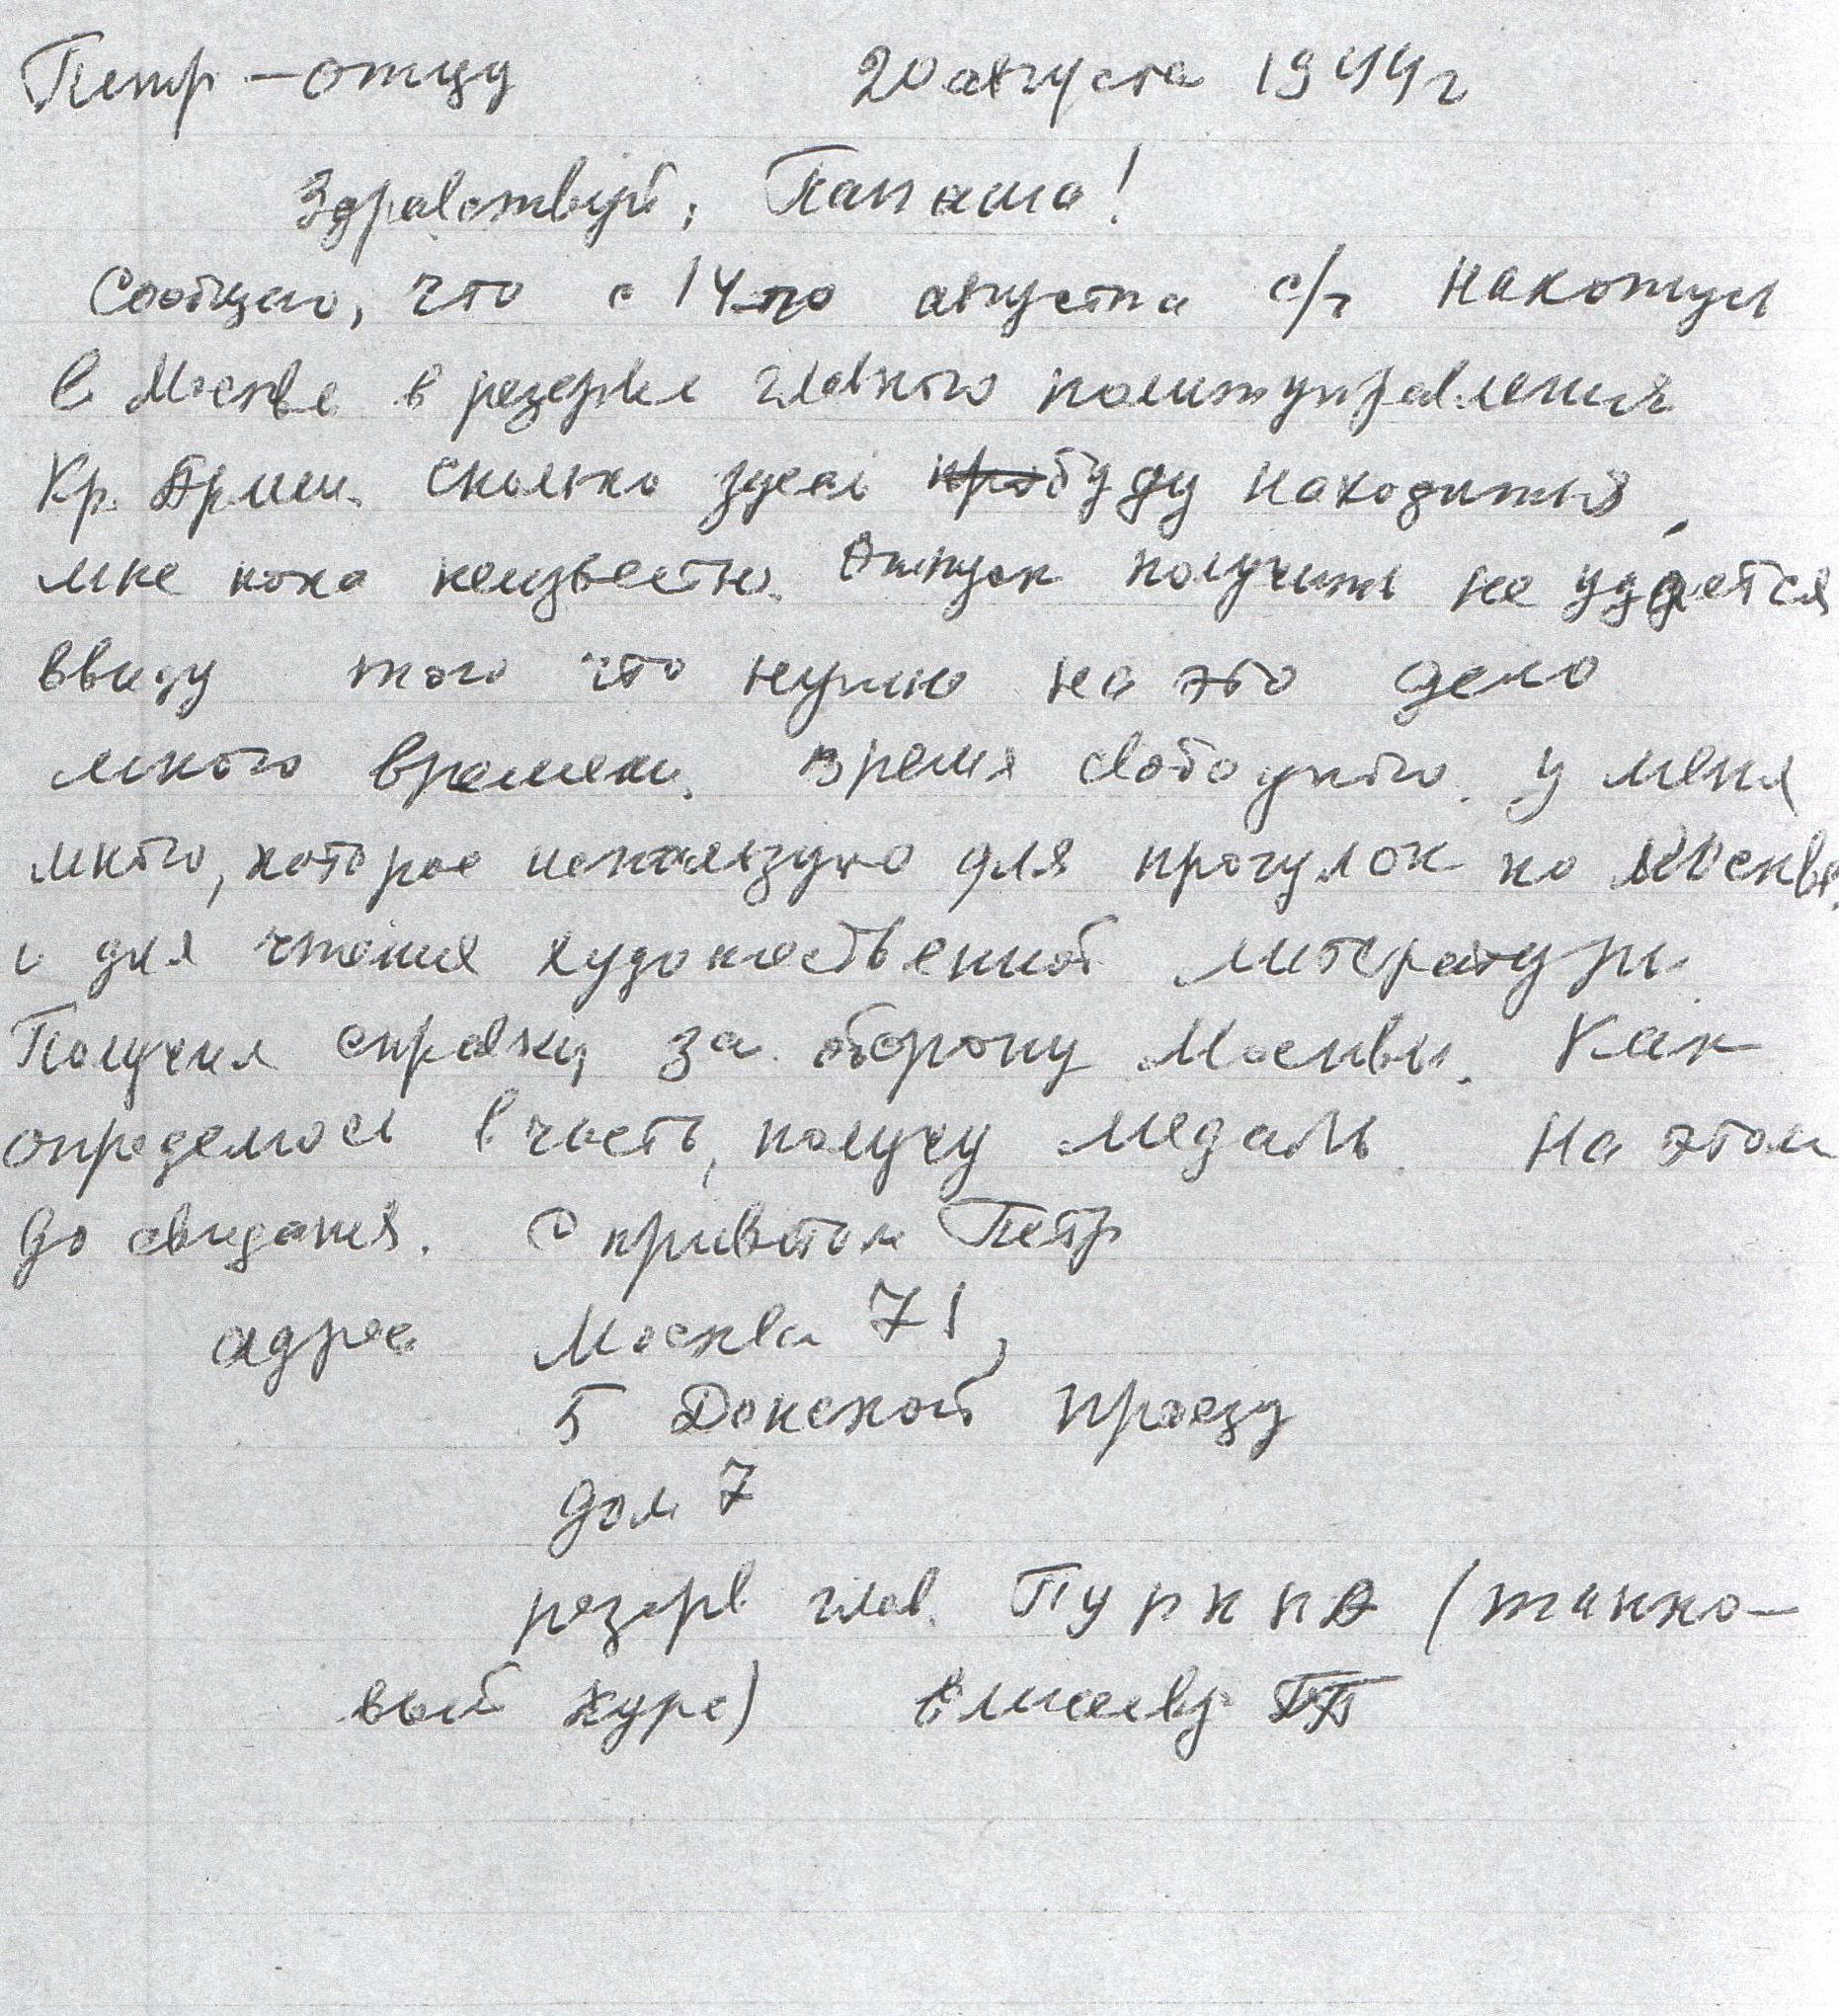 Петр – отцу 20 августа 1944 г
Здравствуй, Папаша!
Сообщаю, что с 14-го августа с/г нахожусь
в Москве в резерве главного политуправления
Кр. Армии. Сколько здесь про буду находиться,
мне пока неизвестно. Отпуск получить не удается
ввиду того что нужно на это дело
много времени. Время свободного у меня
много, которое использую для прогулок по Москве
и для чтения художественной литературы.
Получил справку за оборону Москвы. Как
определюсь в часть, получу медаль. На этом
до свидания. С приветом Петр
адрес Москва 71,
5 Донской проезд
дом 7
резерв глав. ПУРККА (танко-
вый курс) Елисееву ПП